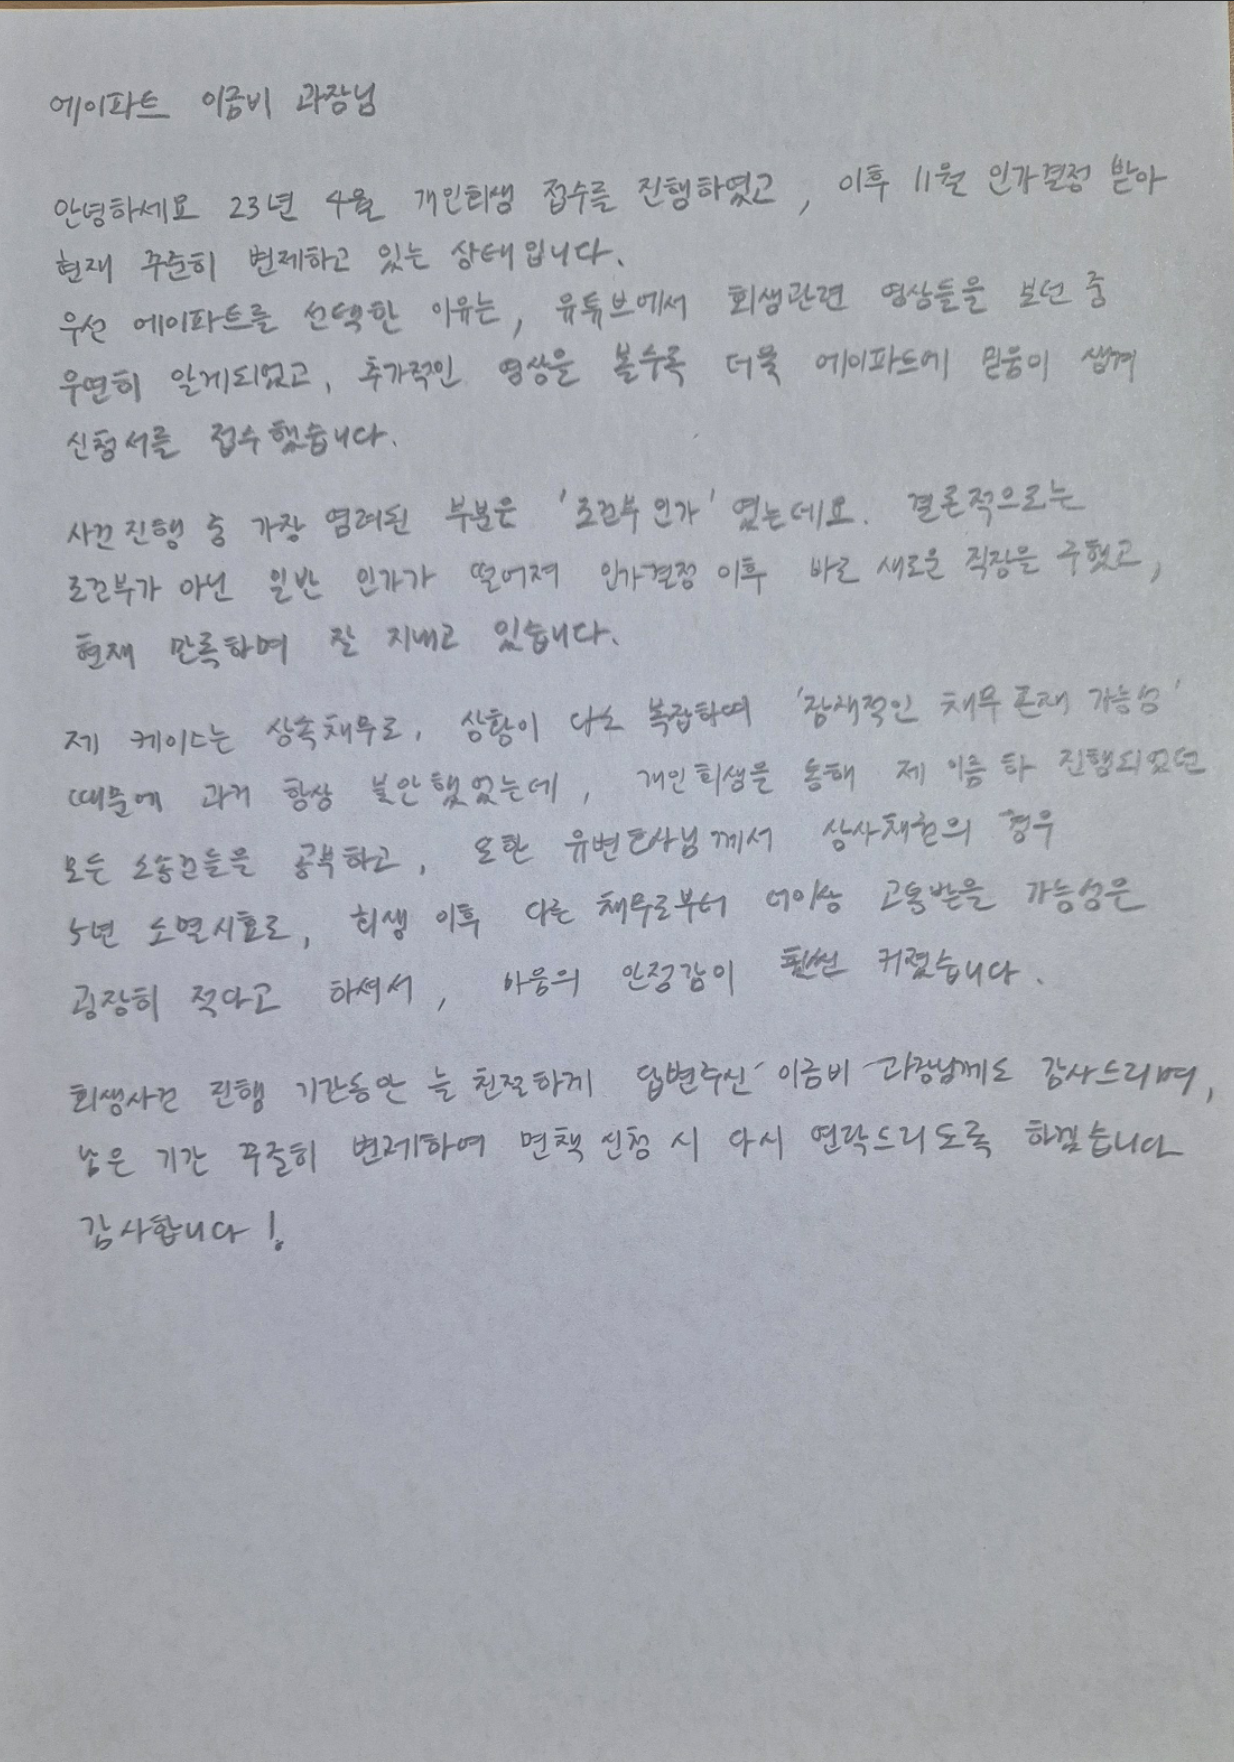 에이파트 이금비 과장님
안녕하세요 23년 4월 개인회생 접수를 진행하였고, 이후 11월 인가결정 받아
현재 꾸준히 변제하고 있는 상태입니다.
우선 에이파트를 선택한 이유는, 유튜브에서 회생관련 영상들을 보던 중
우연히 알게되었고, 추가적인 영상을 볼수록 더욱 에이파트에 믿음이 생겨
신청서를 접수했습니다.
사건진행 중 가장 염려된 부분은 '조건부인가' 였는데요. 결론적으로는
조건부가 아닌 일반 인가가 떨어져 인가결정 이후 바로 새로운 직장을 구했고,
현재 만족하며 잘 지내고 있습니다.
제 케이스는 상속채무로, 상황이 다소 복잡하며 '잠재적인 채무 존재 가능성'
때문에 과거 항상 불안했었는데, 개인회생을 통해 제 이름 하 진행되었던
모든 소송건들을 공부하고, 또한 유변호사님께서 상사채권의 경우
5년 소멸시효로, 회생 이후 다른 채무로부터 더이상 고통받을 가능성은
굉장히 적다고 하셔서, 마음의 안정감이 훨씬 커졌습니다.
회생사건 진행 기간동안 늘 친절하게 답변주신 이금비 과장님께도 감사드리며,
남은 기간 꾸준히 변제하여 면책신청 시 다시 연락드리도록 하겠습니다
감사합니다!